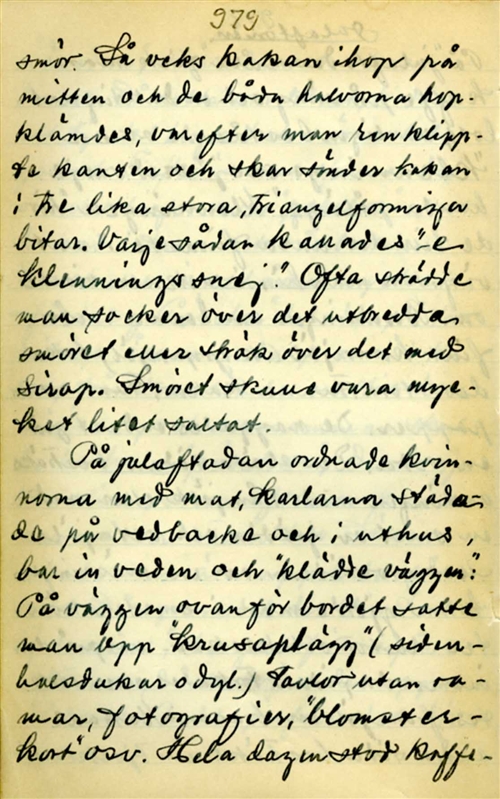 979
smör. Så veks kakan ihop på
mitten och de båda halvorna hop-
klämdes, varefter man renklipp-
te kanten och skar sönder kakan
i tre lika stora, triangelformiga
bitar. Varje sådan kallades "-e
klenningssnej." Ofta strödde
man socker över det utbredda
smöret eller strök över det med
sirap. Smöret skulle vara myc-
ket litet saltat.
På julaftadan ordnade kvin-
norna med mat, karlarna städa-
de på vedbacke och i uthus,
bar in veden och "klädde väggen":
På väggen ovanför bordet satte
man opp "krusaplägg" (siden-
halsdukar o dyl.) tavlor utan ra-
mar, fotografier, "blomster-
kort" osv. Hela dagen stod kaffe-